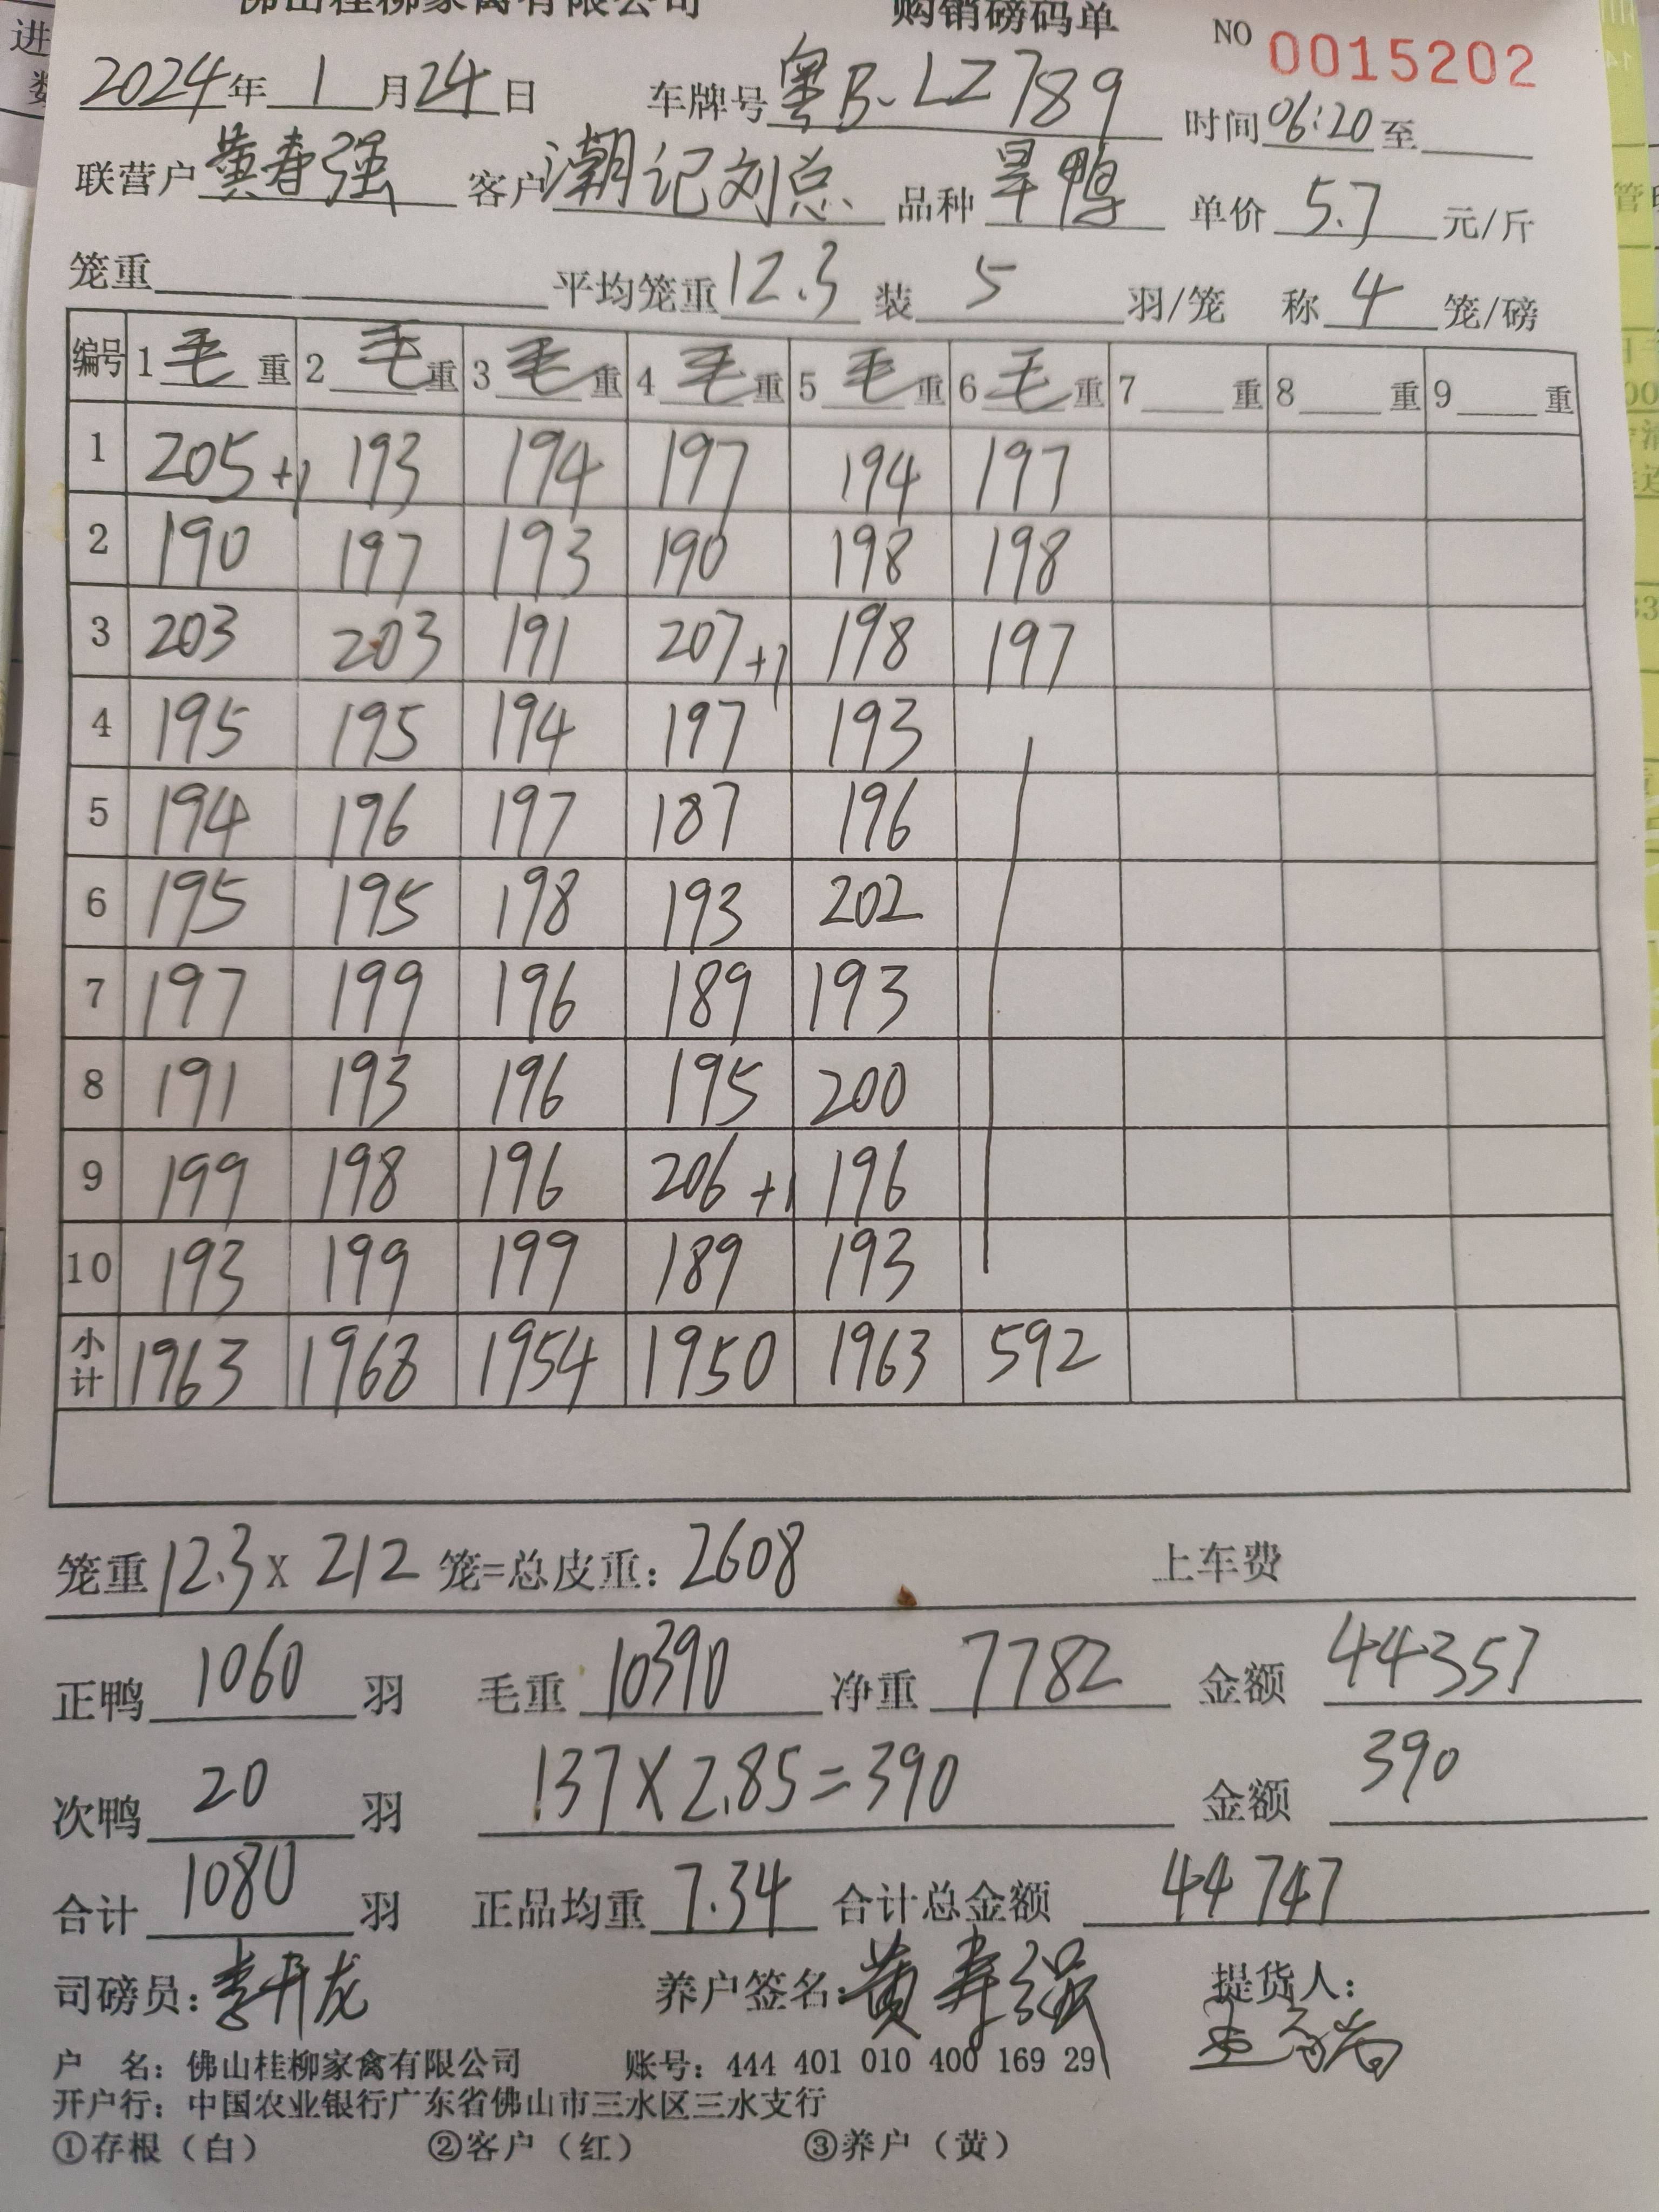 佛山桂柳家禽有限公司 购销磅码单 NO 0015202
2024年 1 月 24 日 车牌号 粤B-LZ789 时间 06:20 至
联营户 黄春强 客户 潮记刘总 品种 旱鸭 单价 5.7 元/斤
笼重 平均笼重 12.3 装 5 羽/笼 称 4 笼/磅
编号 1 毛 重 2 毛 重 3 毛 重 4 毛 重 5 毛 重 6 毛 重 7 重 8 重 9 重
1 205+1 193 194 197 194 197
2 190 197 193 190 198 198
3 203 203 191 207+1 198 197
4 195 195 194 197 193
5 194 196 197 187 196
6 195 195 198 193 202
7 197 199 196 189 193
8 191 193 196 195 200
9 199 198 196 206+1 196
10 193 199 199 189 193
小计 1963 1968 1954 1950 1963 592
笼重 12.3 X 212 笼=总皮重: 2608 上车费
正鸭 1060 羽 毛重 10390 净重 7782 金额 44357
次鸭 20 羽 137×2.85=390 金额 390
合计 1080 羽 正品均重 7.34 合计总金额 44747
司磅员: 养户签名: 提货人:
户 名: 佛山桂柳家禽有限公司 账号: 444 401 010 400 169 29
开户行: 中国农业银行广东省佛山市三水区三水支行
①存根（白） ②客户（红） ③养户（黄）